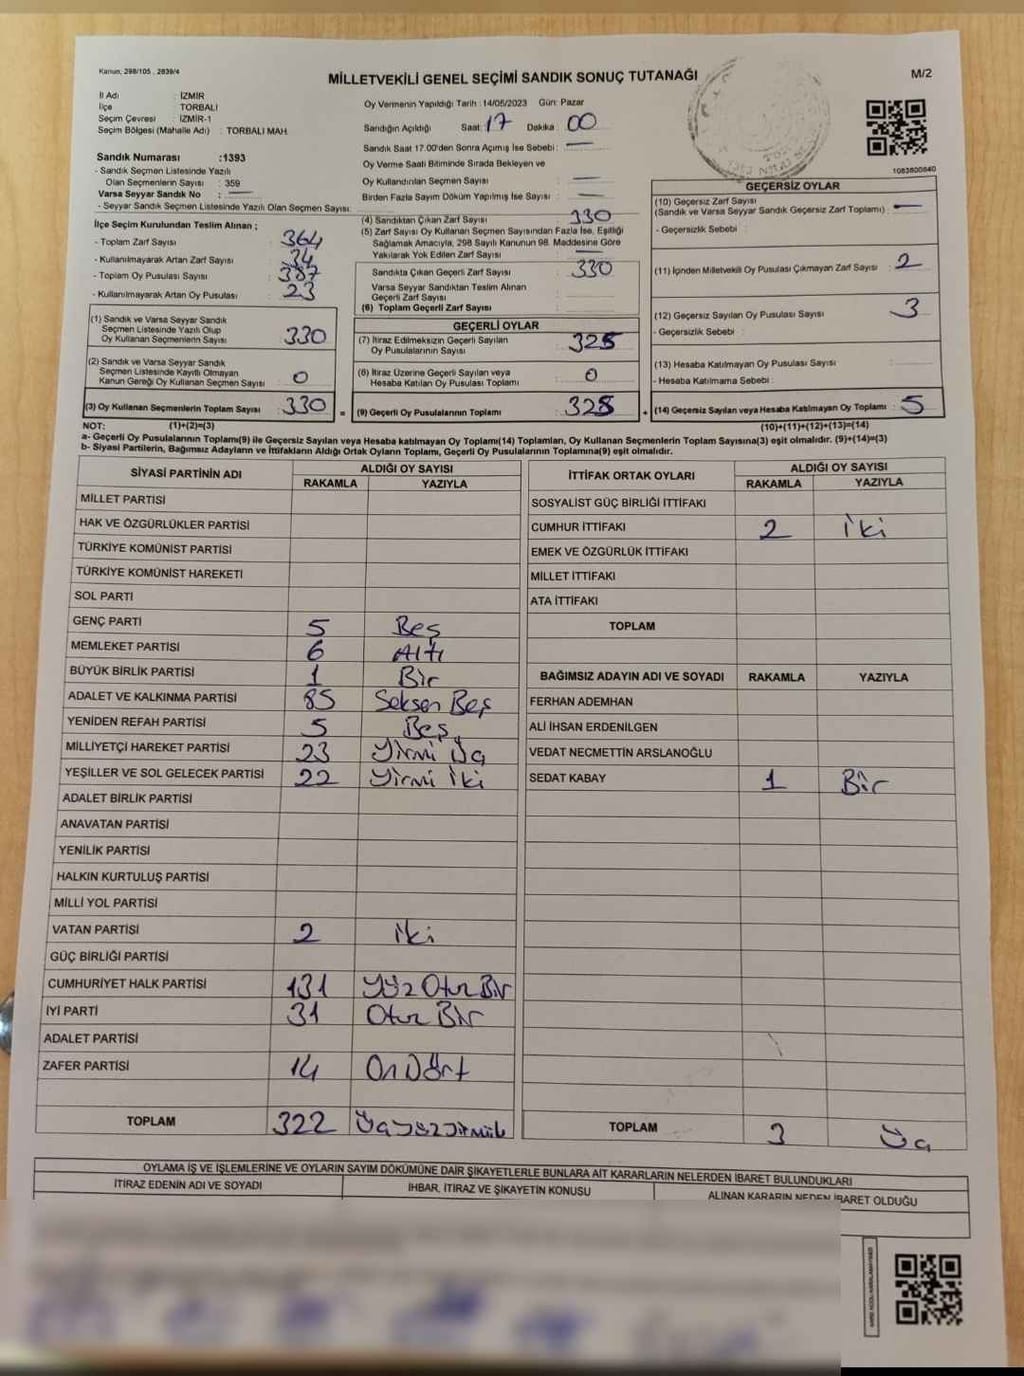 Kanun: 298/105 , 2839/4
MİLLETVEKİLİ GENEL SEÇİMİ SANDIK SONUÇ TUTANAĞI
M/2
İl Adı : İZMİR
İlçe : TORBALI
Seçim Çevresi : İZMİR-1
Seçim Bölgesi (Mahalle Adı) : TORBALI MAH.
Oy Vermenin Yapıldığı Tarih : 14/05/2023 Gün: Pazar
Sandığın Açıldığı Saat: 17 Dakika: 00
Sandık Saat 17.00'den Sonra Açımış İse Sebebi : —
Oy Verme Saati Bitiminde Sırada Bekleyen ve
Oy Kullandırılan Seçmen Sayısı : —
Birden Fazla Sayım Döküm Yapılmış İse Sayısı : —
1083800840
Sandık Numarası :1393
- Sandık Seçmen Listesinde Yazılı
Olan Seçmenlerin Sayısı : 359
Varsa Seyyar Sandık No : —
- Seyyar Sandık Seçmen Listesinde Yazılı Olan Seçmen Sayısı:
İlçe Seçim Kurulundan Teslim Alınan ;
- Toplam Zarf Sayısı : 364
- Kullanılmayarak Artan Zarf Sayısı : 34
- Toplam Oy Pusulası Sayısı : 387
- Kullanılmayarak Artan Oy Pusulası : 23
(1) Sandık ve Varsa Seyyar Sandık
Seçmen Listesinde Yazılı Olup
Oy Kullanan Seçmenlerin Sayısı : 330
(2) Sandık ve Varsa Seyyar Sandık
Seçmen Listesinde Kayıtlı Olmayan
Kanun Gereği Oy Kullanan Seçmen Sayısı : 0
(3) Oy Kullanan Seçmenlerin Toplam Sayısı : 330
(4) Sandıktan Çıkan Zarf Sayısı : 330
(5) Zarf Sayısı Oy Kullanan Seçmen Sayısından Fazla İse, Eşitliği
Sağlamak Amacıyla, 298 Sayılı Kanunun 98. Maddesine Göre
Yakılarak Yok Edilen Zarf Sayısı : —
Sandıkta Çıkan Geçerli Zarf Sayısı : 330
Varsa Seyyar Sandıktan Teslim Alınan
Geçerli Zarf Sayısı
(6) Toplam Geçerli Zarf Sayısı
GEÇERLİ OYLAR
(7) İtiraz Edilmeksizin Geçerli Sayılan
Oy Pusulalarının Sayısı : 325
(8) İtiraz Üzerine Geçerli Sayılan veya
Hesaba Katılan Oy Pusulası Toplamı : 0
= (9) Geçerli Oy Pusulalarının Toplamı : 325
GEÇERSİZ OYLAR
(10) Geçersiz Zarf Sayısı
(Sandık ve Varsa Seyyar Sandık Geçersiz Zarf Toplamı) : —
- Geçersizlik Sebebi :
(11) İçinden Milletvekili Oy Pusulası Çıkmayan Zarf Sayısı : 2
(12) Geçersiz Sayılan Oy Pusulası Sayısı : 3
- Geçersizlik Sebebi :
(13) Hesaba Katılmayan Oy Pusulası Sayısı :
- Hesaba Katılmama Sebebi :
+ (14) Geçersiz Sayılan veya Hesaba Katılmayan Oy Toplamı : 5
NOT: (1)+(2)=(3) (10)+(11)+(12)+(13)=(14)
a- Geçerli Oy Pusulalarının Toplamı(9) ile Geçersiz Sayılan veya Hesaba katılmayan Oy Toplamı(14) Toplamları, Oy Kullanan Seçmenlerin Toplam Sayısına(3) eşit olmalıdır. (9)+(14)=(3)
b- Siyasi Partilerin, Bağımsız Adayların ve İttifakların Aldığı Ortak Oyların Toplamı, Geçerli Oy Pusulalarının Toplamına(9) eşit olmalıdır.
SİYASİ PARTİNİN ADI ALDIĞI OY SAYISI
RAKAMLA YAZIYLA
MİLLET PARTİSİ
HAK VE ÖZGÜRLÜKLER PARTİSİ
TÜRKİYE KOMÜNİST PARTİSİ
TÜRKİYE KOMÜNİST HAREKETİ
SOL PARTİ
GENÇ PARTİ 5 Beş
MEMLEKET PARTİSİ 6 Altı
BÜYÜK BİRLİK PARTİSİ 1 Bir
ADALET VE KALKINMA PARTİSİ 85 Seksen Beş
YENİDEN REFAH PARTİSİ 5 Beş
MİLLİYETÇİ HAREKET PARTİSİ 23 Yirmi Üç
YEŞİLLER VE SOL GELECEK PARTİSİ 22 Yirmi İki
ADALET BİRLİK PARTİSİ
ANAVATAN PARTİSİ
YENİLİK PARTİSİ
HALKIN KURTULUŞ PARTİSİ
MİLLİ YOL PARTİSİ
VATAN PARTİSİ 2 İki
GÜÇ BİRLİĞİ PARTİSİ
CUMHURİYET HALK PARTİSİ 131 Yüz Otuz Bir
İYİ PARTİ 31 Otuz Bir
ADALET PARTİSİ
ZAFER PARTİSİ 14 On Dört
TOPLAM 322 Üçyüzyirmiiki
İTTİFAK ORTAK OYLARI ALDIĞI OY SAYISI
RAKAMLA YAZIYLA
SOSYALİST GÜÇ BİRLİĞİ İTTİFAKI
CUMHUR İTTİFAKI 2 İki
EMEK VE ÖZGÜRLÜK İTTİFAKI
MİLLET İTTİFAKI
ATA İTTİFAKI
TOPLAM
BAĞIMSIZ ADAYIN ADI VE SOYADI RAKAMLA YAZIYLA
FERHAN ADEMHAN
ALİ İHSAN ERDENİLGEN
VEDAT NECMETTİN ARSLANOĞLU
SEDAT KABAY 1 Bir
TOPLAM 3 Üç
OYLAMA İŞ VE İŞLEMLERİNE VE OYLARIN SAYIM DÖKÜMÜNE DAİR ŞİKAYETLERLE BUNLARA AİT KARARLARIN NELERDEN İBARET BULUNDUKLARI
İTİRAZ EDENİN ADI VE SOYADI İHBAR, İTİRAZ VE ŞİKAYETİN KONUSU ALINAN KARARIN NEDEN İBARET OLDUĞU